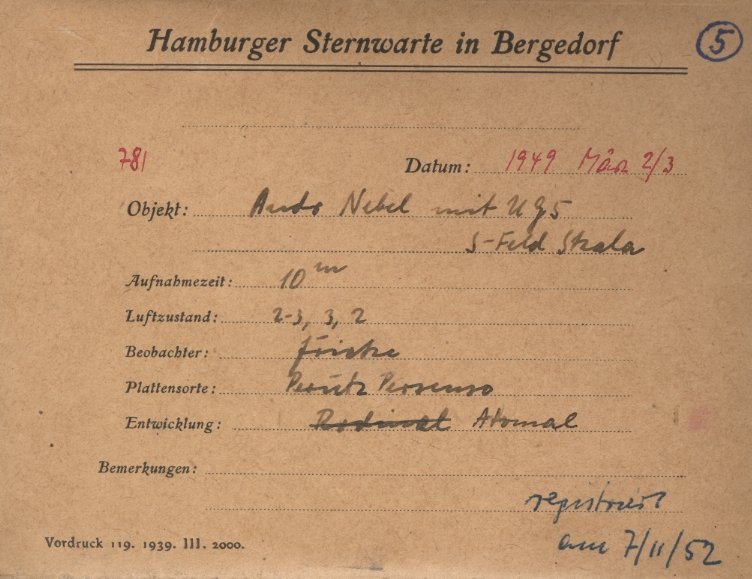 Hamburger Sternwarte in Bergedorf
5
781
Datum: 1949 März 2/3
Objekt: Andr Nebel mit UG5
S-Feld Skala
Aufnahmezeit: 10 m
Luftzustand: 2-3, 3, 2
Beobachter:
Plattensorte: Perutz Persenso
Entwicklung: Rodinal Atomal
Bemerkungen:
registriert
am 7/11/52
Vordruck 119. 1939. III. 2000.